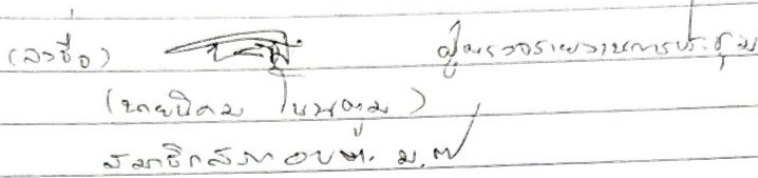 (ลงชื่อ) ผู้ตรวจรายงานการประชุม
(นายนิคม
สมาชิกสภา อบต. ม.๗